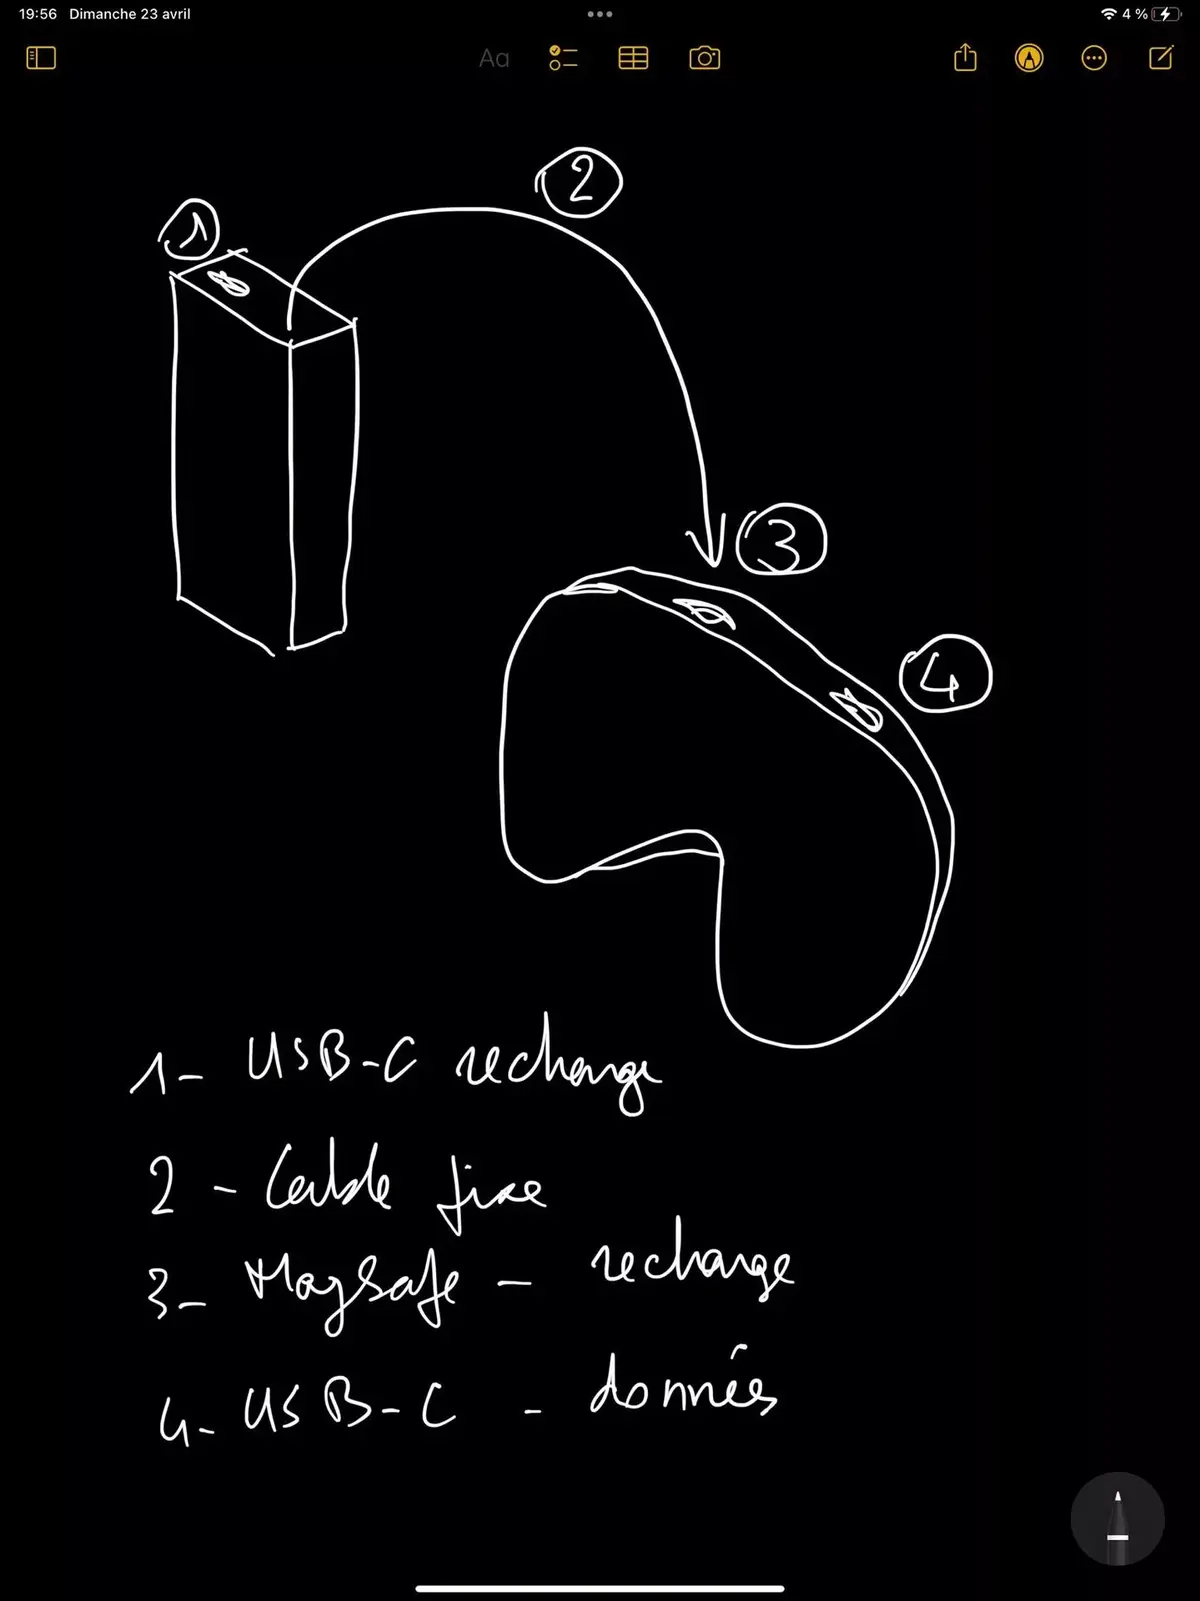 19:56 Dimanche 23 avril
4 %
Aa
2
1
3
4
1- USB-C recharge
2 - Cable fixe
3- MagSafe - recharge
4- USB-C - donnés